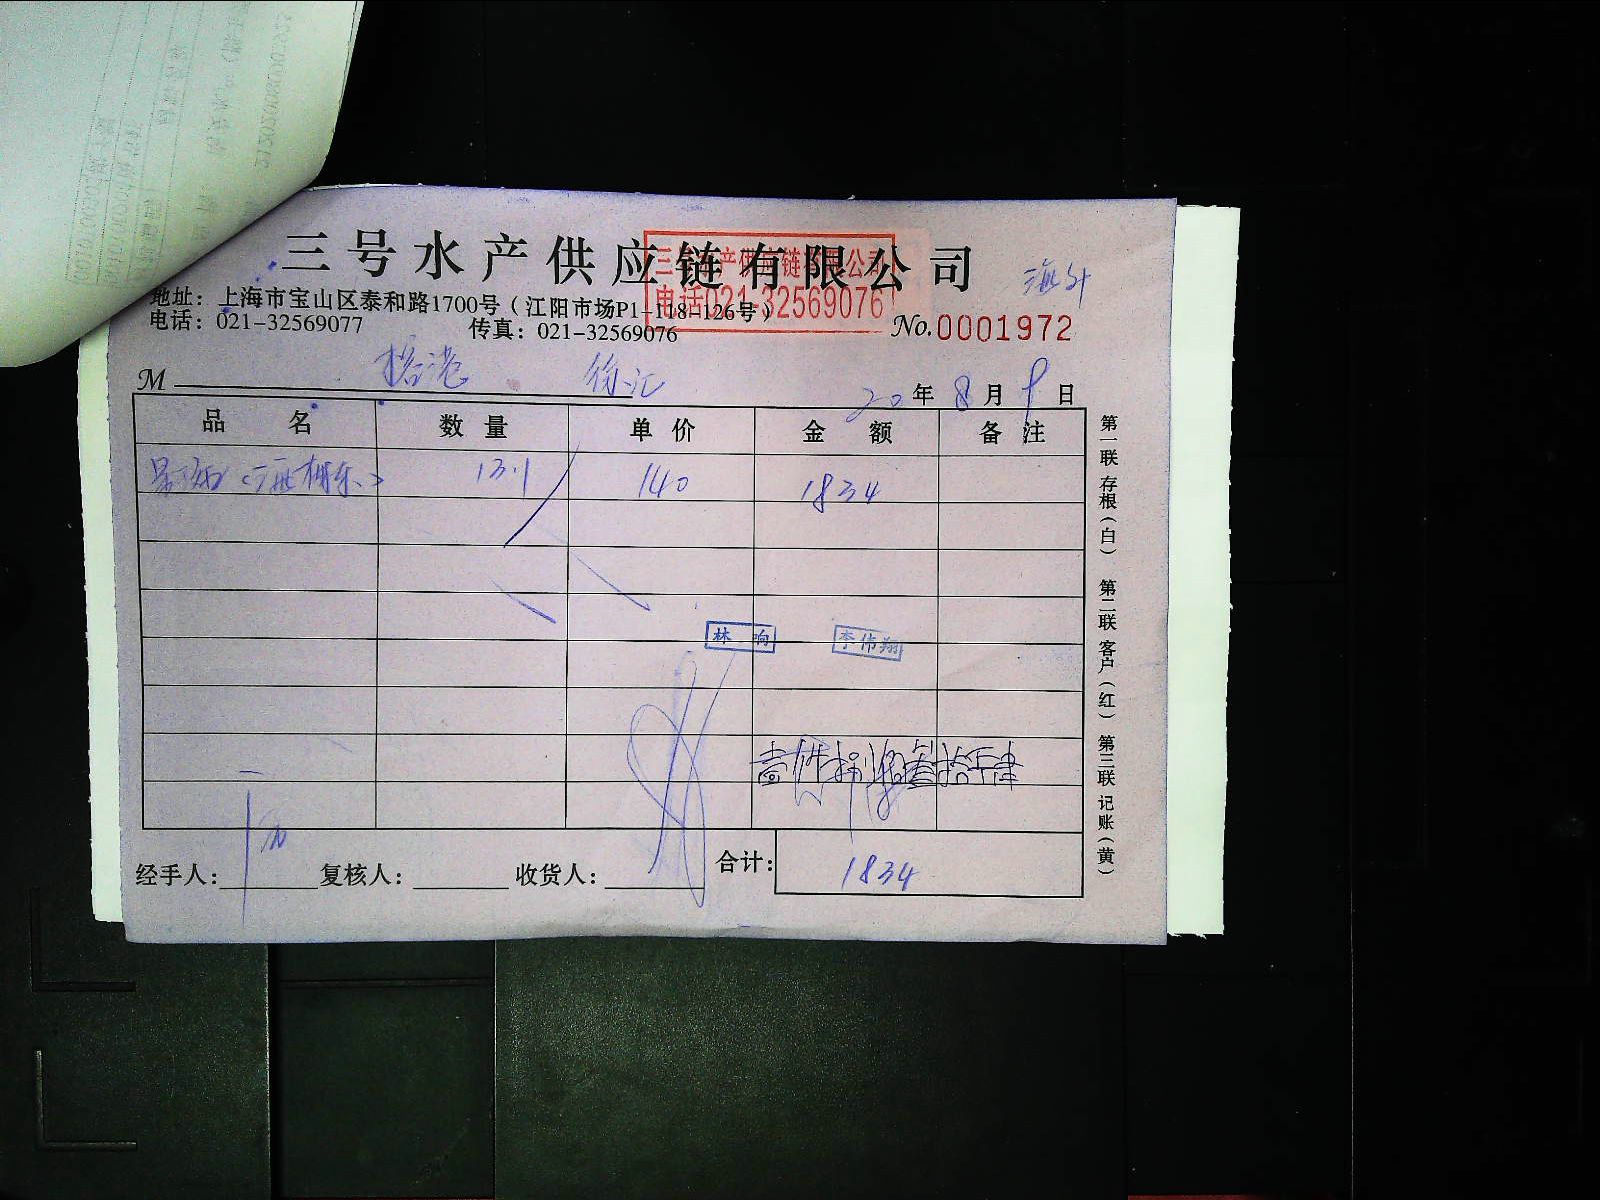 三号水产供应链有限公司
三号水产供应链有限公司
电话021-32569076
地址：上海市宝山区泰和路1700号（江阳市场P1-118-126号）
电话：021-32569077 传真：021-32569076
No.0001972
M 徐汇 20年8月9日
品名 数量 单价 金额 备注
13.1 140 1834
林响 李伟翔
壹仟捌佰叁拾
经手人： 复核人： 收货人： 合计： 1834
第一联 存根（白） 第二联 客户（红） 第三联 记账（黄）